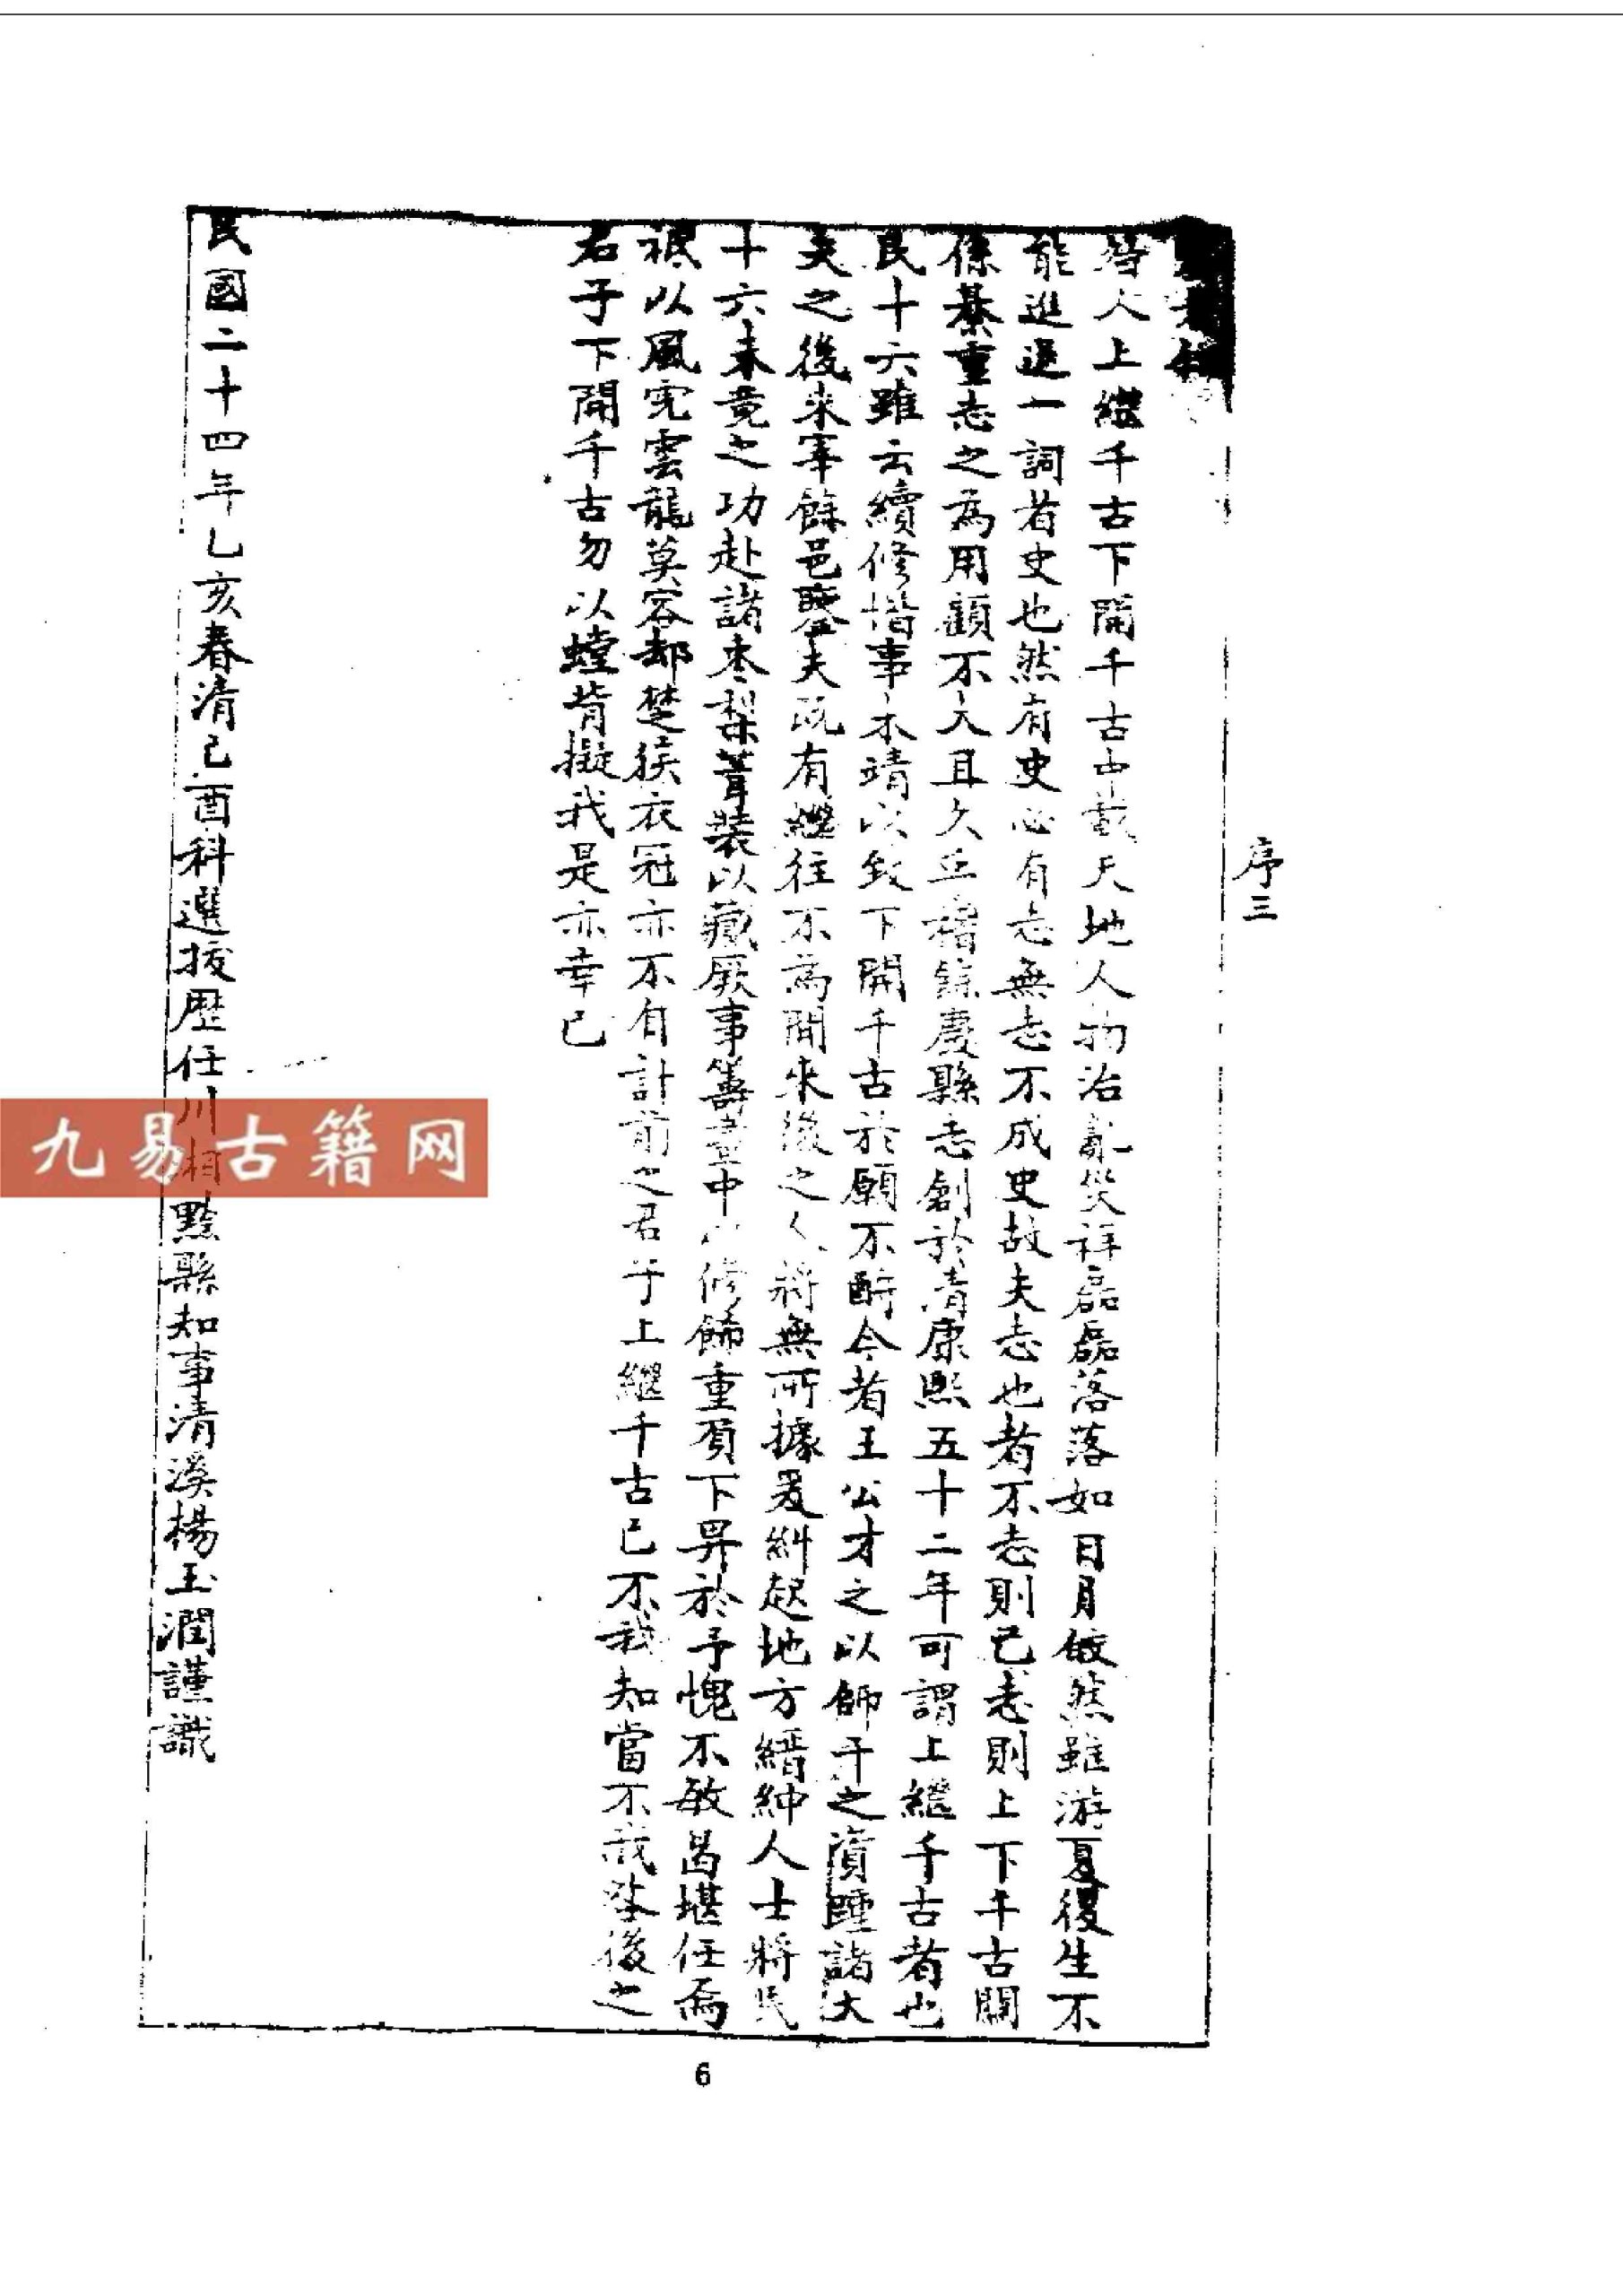 序三
昔人上繼千古下開千古中載天地人物治亂災祥磊磊落落如日月皎然雖游夏復生不
能進退一詞者史也然有史必有志無志不成史故夫志也者不志則已志則上下千古關
係綦重志之為用顧不大且久乎稽餘慶縣志創於清康熙五十二年可謂上繼千古者也
民十六雖云續修惜事未靖以致下開千古於願不酬今者王公才之以師干之資踵諸大
夫之後來宰餘邑鑒夫既有繼往不為開來後之人將無所據爰糾起地方縉紳人士將民
十六未竟之功赴諸棗梨葺裝以藏厥事籌畫中以修飾重負下畀於予愧不敏曷堪任焉
祗以風虎雲龍莫容却楚猴衣冠亦不自計前之君子上繼千古已不我知當不我咎後之
君子下開千古勿以螳背擬我是亦幸已
民國二十四年乙亥春清己酉科選拔歷任川湘黔縣知事清溪楊玉潤謹識
九易古籍网
6